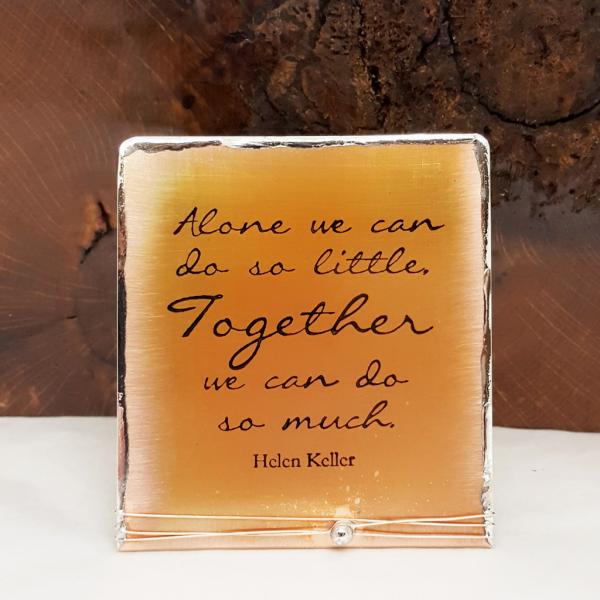 Alone we can
do so little.
Together
we can do
so much.
Helen Keller